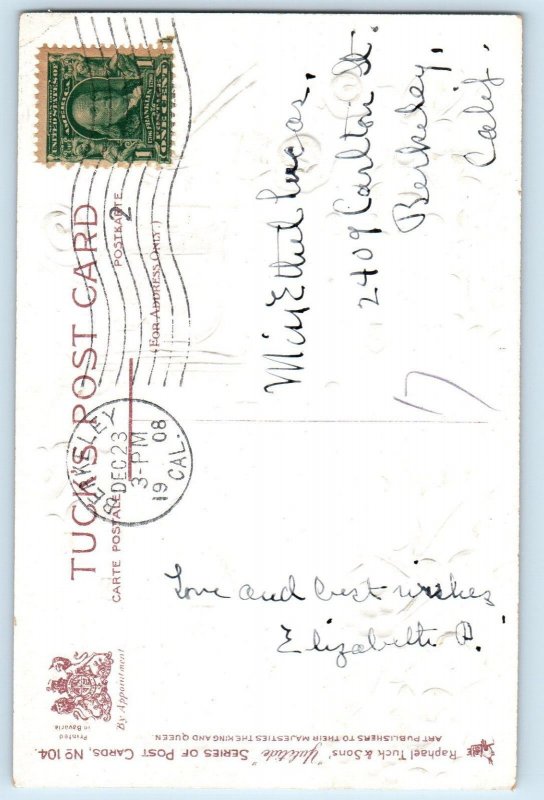 TUCK'S POST CARD
CARTE POSTALE
POSTKARTE
(FOR ADDRESS ONLY.)
UNITED STATES OF AMERICA
1706 FRANKLIN 1790
1 ONE CENT 1
2
BERKELEY
DEC 23
3-PM
19 08
CAL.
Miss Ethel Lucas.
2409 Carlton St.
Berkeley,
Calif.
Love and best wishes
Elizabeth P.
By Appointment
Printed
in Bavaria
Raphael Tuck & Sons' "Yuletide" SERIES OF POST CARDS, No 104.
ART PUBLISHERS TO THEIR MAJESTIES THE KING AND QUEEN